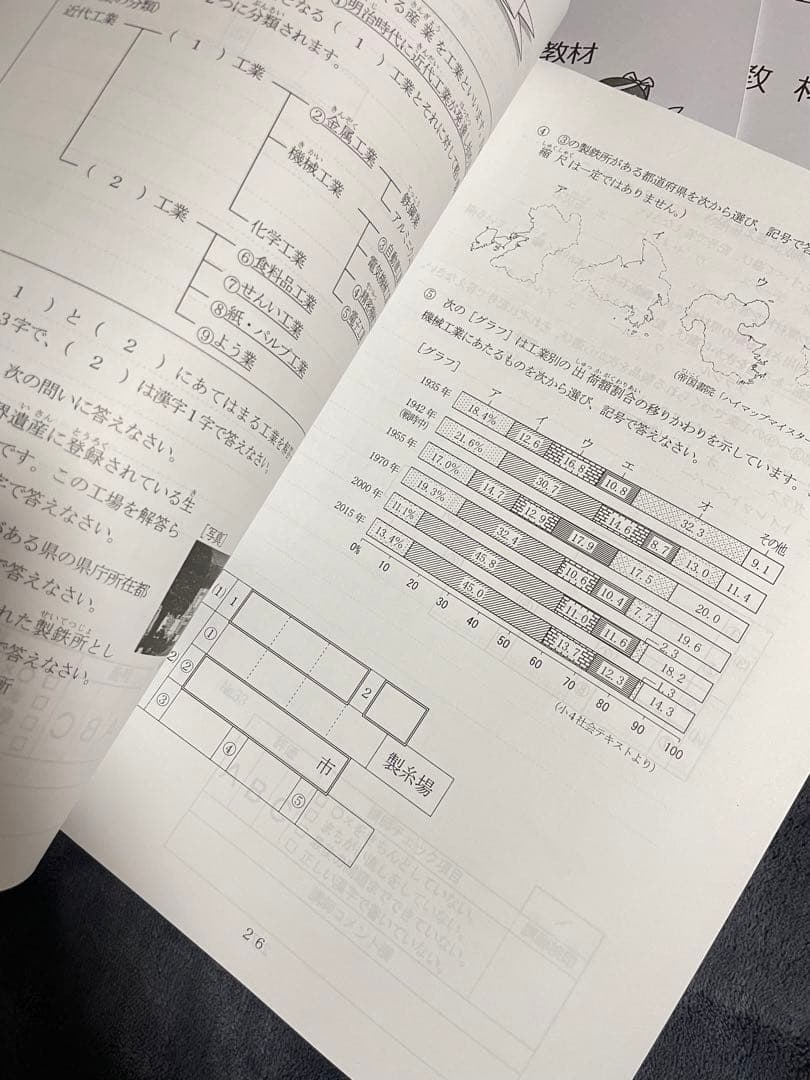 教材
教 材
る産業を工業といいます。
①明治時代に近代工業が発達し
となる（ 1 ）工業とそれに対して
つに分類されます。
の分類）
近代工業
（ 1 ）工業
②金属工業
鉄鋼業
アルミニ
機械工業
③自動車
電気機械
化学工業
（ 2 ）工業
⑥食料品工業
⑦せんい工業
⑧紙・パルプ工業
⑨よう業
1 ）と（ 2 ）にあてはまる工業を
3字で、（ 2 ）は漢字1字で答えなさい。
次の問いに答えなさい。
界遺産に登録されている生
です。この工場を解答ら
字で答えなさい。
がある県の県庁所在都
で答えなさい。
れた製鉄所とし
で答えなさい。
所
[写真]
④ ③の製鉄所がある都道府県を次から選び、記号で答
縮尺は一定ではありません。）
ア
イ
ウ
（帝国書院「ハイマップマイスター
⑤ 次の［グラフ］は工業別の出荷額割合の移りかわりを示しています。
機械工業にあたるものを次から選び、記号で答えなさい。
［グラフ］
ア イ ウ エ オ その他
1935年 18.4% 12.6 16.8 10.8 32.3 9.1
1942年 21.6% 30.7 14.6 8.7 13.0 11.4
(戦時中)
1955年 17.0% 14.7 12.9 17.9 17.5 20.0
1970年 19.3% 32.4 10.6 10.4 7.7 19.6
2000年 11.1% 45.8 11.0 11.6 2.3 18.2
2015年 13.4% 45.0 13.7 12.3 1.3 14.3
0% 10 20 30 40 50 60 70 80 90 100
（小4社会テキストより）
(1) 1 2
2 ① 製糸場
② 市
③ ④ ⑤
26